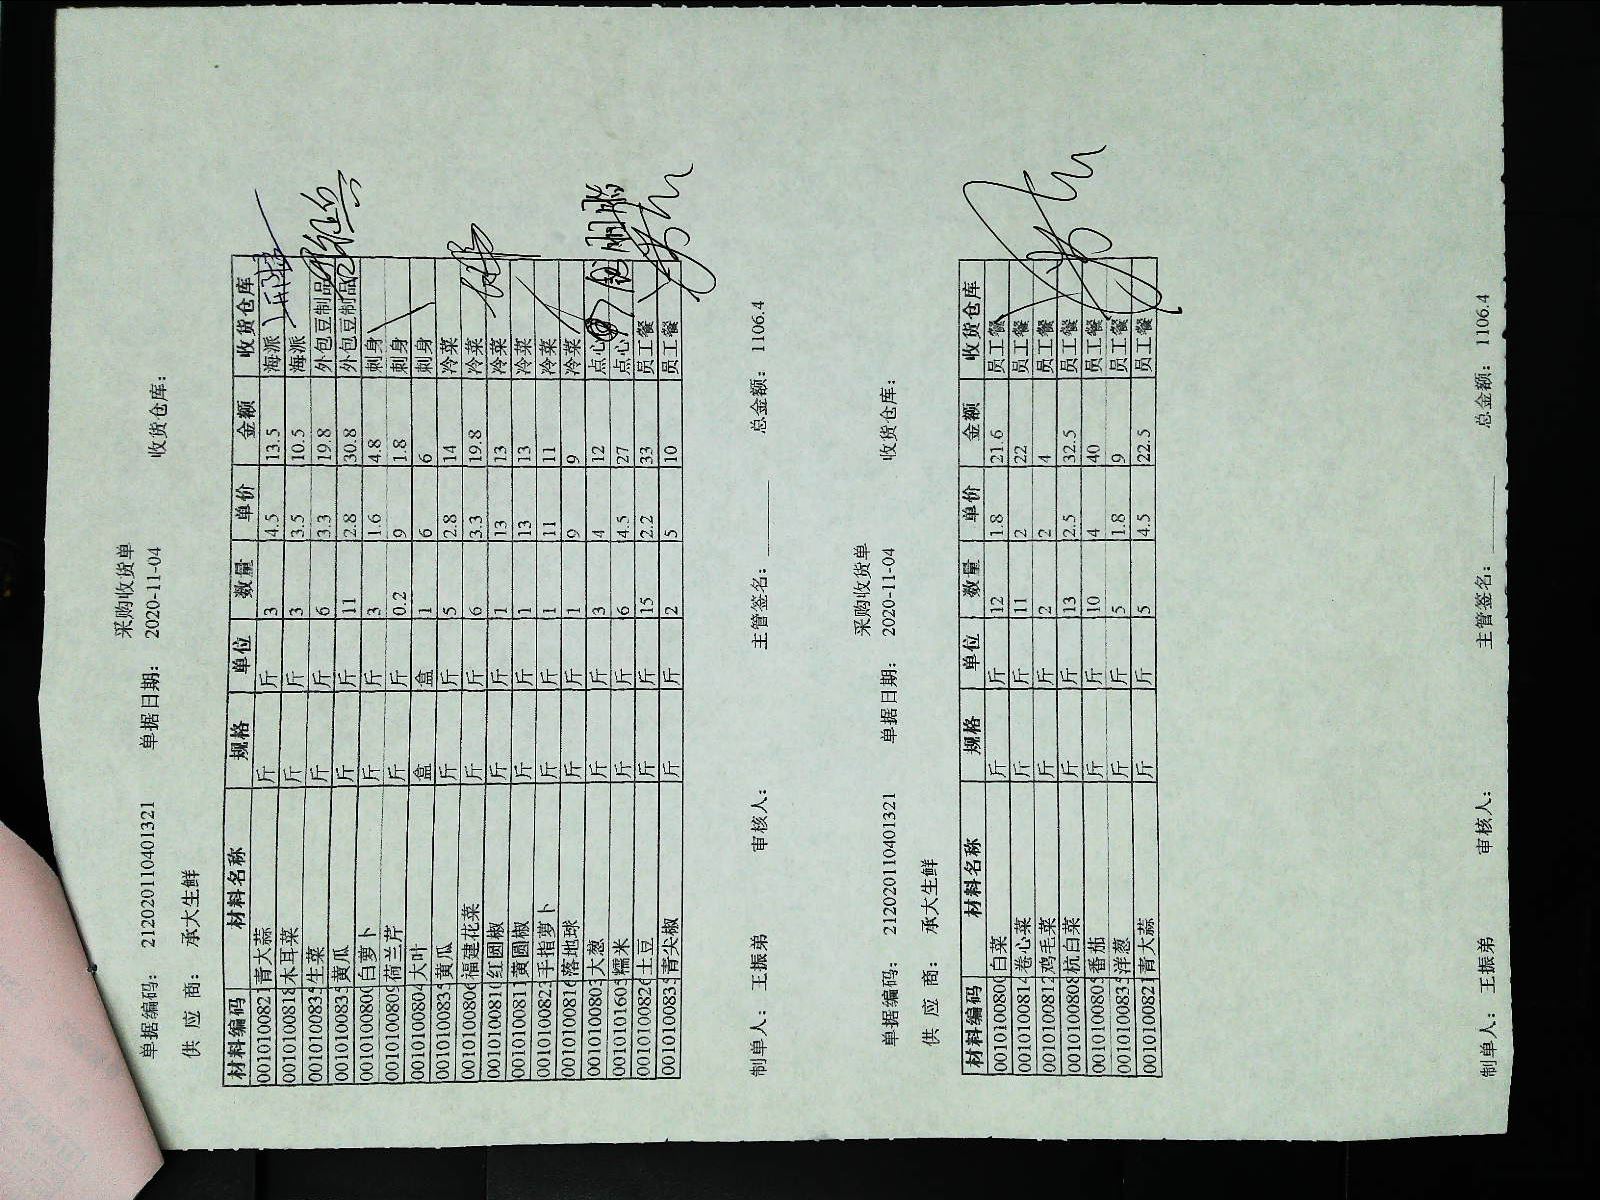 采购收货单
单据编码： 212020110401321 单据日期： 2020-11-04 收货仓库：
供 应 商： 承大生鲜
材料编码 材料名称 规格 单位 数量 单价 金额 收货仓库
0010100821 青大蒜 斤 斤 3 4.5 13.5 海派
0010100818 木耳菜 斤 斤 3 3.5 10.5 海派
0010100835 生菜 斤 斤 6 3.3 19.8 外包豆制品
0010100835 黄瓜 斤 斤 11 2.8 30.8 外包豆制品
0010100800 白萝卜 斤 斤 3 1.6 4.8 刺身
0010100809 荷兰芹 斤 斤 0.2 9 1.8 刺身
0010100804 大叶 盒 盒 1 6 6 刺身
0010100835 黄瓜 斤 斤 5 2.8 14 冷菜
0010100806 福建花菜 斤 斤 6 3.3 19.8 冷菜
0010100810 红圆椒 斤 斤 1 13 13 冷菜
0010100811 黄圆椒 斤 斤 1 13 13 冷菜
0010100823 手指萝卜 斤 斤 1 11 11 冷菜
0010100816 落地球 斤 斤 1 9 9 冷菜
0010100803 大葱 斤 斤 3 4 12 点心
0010101605 糯米 斤 斤 6 4.5 27 点心
0010100826 土豆 斤 斤 15 2.2 33 员工餐
0010100835 青尖椒 斤 斤 2 5 10 员工餐
制单人： 王振弟 审核人： 主管签名： 总金额： 1106.4
采购收货单
单据编码： 212020110401321 单据日期： 2020-11-04 收货仓库：
供 应 商： 承大生鲜
材料编码 材料名称 规格 单位 数量 单价 金额 收货仓库
0010100800 白菜 斤 斤 12 1.8 21.6 员工餐
0010100814 卷心菜 斤 斤 11 2 22 员工餐
0010100812 鸡毛菜 斤 斤 2 2 4 员工餐
0010100808 杭白菜 斤 斤 13 2.5 32.5 员工餐
0010100805 番茄 斤 斤 10 4 40 员工餐
0010100835 洋葱 斤 斤 5 1.8 9 员工餐
0010100821 青大蒜 斤 斤 5 4.5 22.5 员工餐
制单人： 王振弟 审核人： 主管签名： 总金额： 1106.4